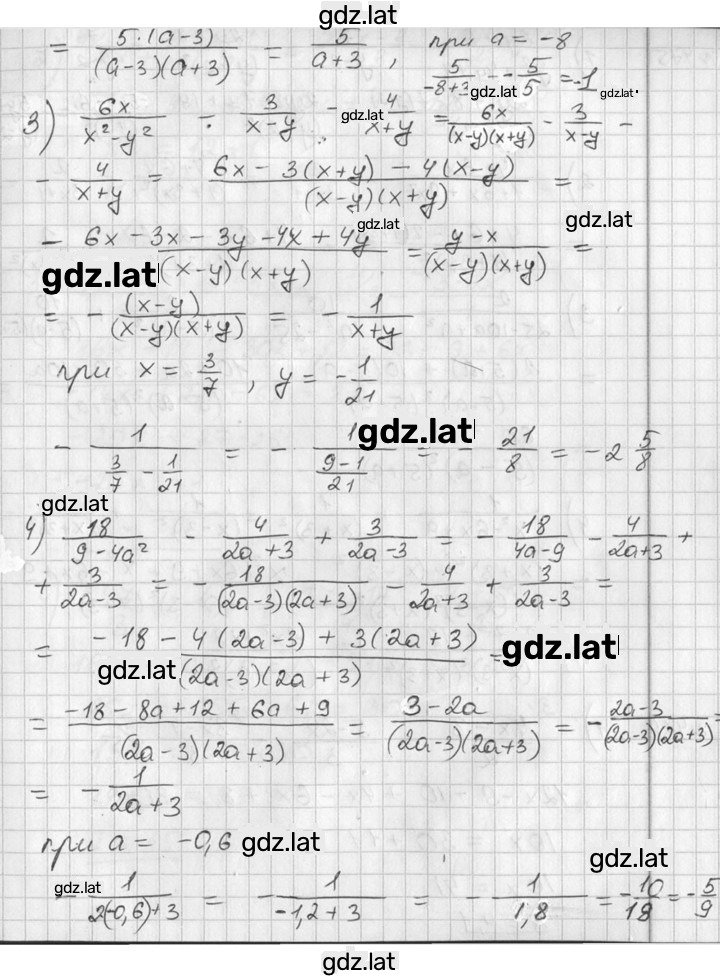 gdz.lat
= 5·(a-3)/((a-3)(a+3)) = 5/(a+3), при a = -8
5/(-8+3) = -5/5 = -1 gdz.lat gdz.lat
3) 6x/(x²-y²) - 3/(x-y) - gdz.lat 4/(x+y) = 6x/((x-y)(x+y)) - 3/(x-y) -
- 4/(x+y) = (6x - 3(x+y) - 4(x-y))/((x-y)(x+y)) =
gdz.lat gdz.lat
- (6x - 3x - 3y - 4x + 4y)/((x-y)(x+y)) = (y-x)/((x-y)(x+y)) =
gdz.lat
= - (x-y)/((x-y)(x+y)) = - 1/(x+y)
при x = 3/7, y = -1/21
- 1/(3/7 - 1/21) = - 1/((9-1)/21) = - 21/8 = -2 5/8
gdz.lat
gdz.lat
4) 18/(9-4a²) - 4/(2a+3) + 3/(2a-3) = - 18/(4a-9) - 4/(2a+3) +
+ 3/(2a-3) = - 18/((2a-3)(2a+3)) - 4/(2a+3) + 3/(2a-3) =
= (-18 - 4(2a-3) + 3(2a+3))/((2a-3)(2a+3)) = gdz.lat
gdz.lat
= (-18 - 8a + 12 + 6a + 9)/((2a-3)(2a+3)) = (3-2a)/((2a-3)(2a+3)) = - (2a-3)/((2a-3)(2a+3)) =
= - 1/(2a+3)
при a = -0,6 gdz.lat
gdz.lat
gdz.lat
- 1/(2(-0,6)+3) = - 1/(-1,2+3) = - 1/1,8 = -10/18 = -5/9
gdz.lat